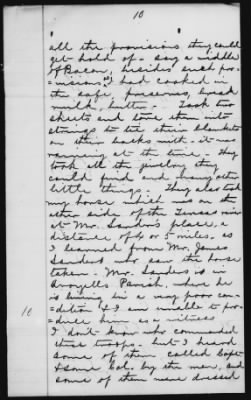 10
all the provisions they could
get hold of - say a middle
of Bacon, besides such pro-
=visions as I had cooked in
the safe, preserves, bread
milk, butter. - Took two
sheets and tore them into
strings to tie their blankets
on their backs with - it was
raining at the time. They
took all the jewelry they
could find and many other
little things. They also took
my horse which was on the
other side of the Tensas river
at Mr. Sanders place, a
distance of 4 or 5 miles, as
I learned from Mr. James
Sanders who saw the horse
taken. Mr. Sanders is in
Avoyelles Parish, where he
is living in a very poor con-
=dition & I am unable to pro-
=duce him as a witness
10
I don't know who commanded
these troops. but I heard
some of them called Capt
& some Col. by the men, and
some of them were dressed